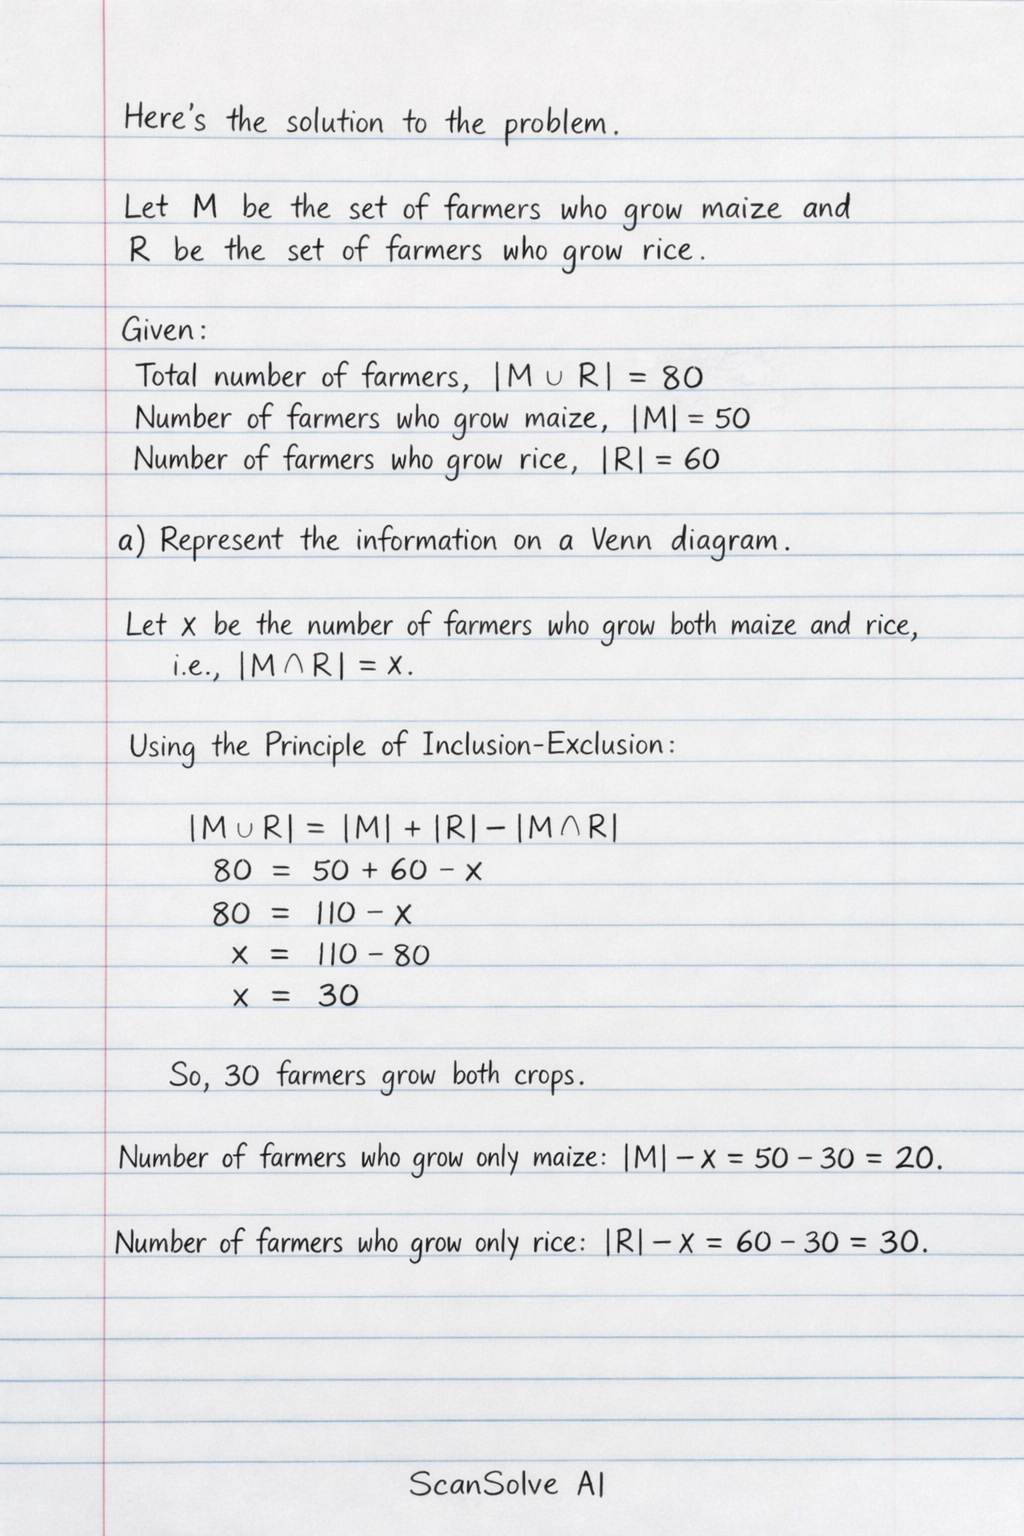 Here's the solution to the problem.
Let M be the set of farmers who grow maize and
R be the set of farmers who grow rice.
Given:
Total number of farmers, |M ∪ R| = 80
Number of farmers who grow maize, |M| = 50
Number of farmers who grow rice, |R| = 60
a) Represent the information on a Venn diagram.
Let x be the number of farmers who grow both maize and rice,
i.e., |M ∩ R| = x.
Using the Principle of Inclusion-Exclusion:
|M ∪ R| = |M| + |R| − |M ∩ R|
80 = 50 + 60 − x
80 = 110 − x
x = 110 − 80
x = 30
So, 30 farmers grow both crops.
Number of farmers who grow only maize: |M| − x = 50 − 30 = 20.
Number of farmers who grow only rice: |R| − x = 60 − 30 = 30.
ScanSolve AI